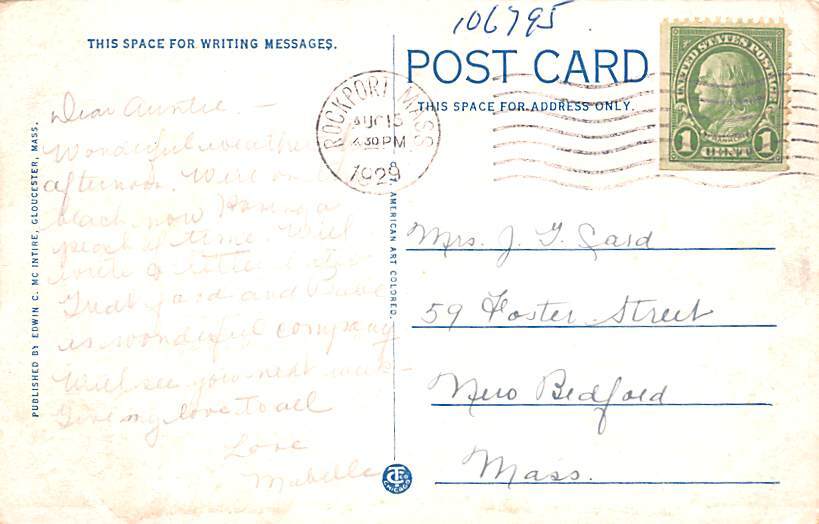 106795
THIS SPACE FOR WRITING MESSAGES.
POST CARD
THIS SPACE FOR ADDRESS ONLY.
UNITED STATES POSTAGE
FRANKLIN
1 CENT 1
ROCKPORT MASS
AUG 15
4 30 PM
1929
Dear Auntie —
Wonderful weather
afternoon. We're on
beach now Having a
peach of time. Will
write a letter later
Great food and
is wonderful company
Will see you next week —
Give my love to all
Love
Mabelle
Mrs. J. T. Card
59 Foster Street
New Bedford
Mass.
PUBLISHED BY EDWIN C. MC INTIRE, GLOUCESTER, MASS.
AMERICAN ART COLORED.
CHICAGO